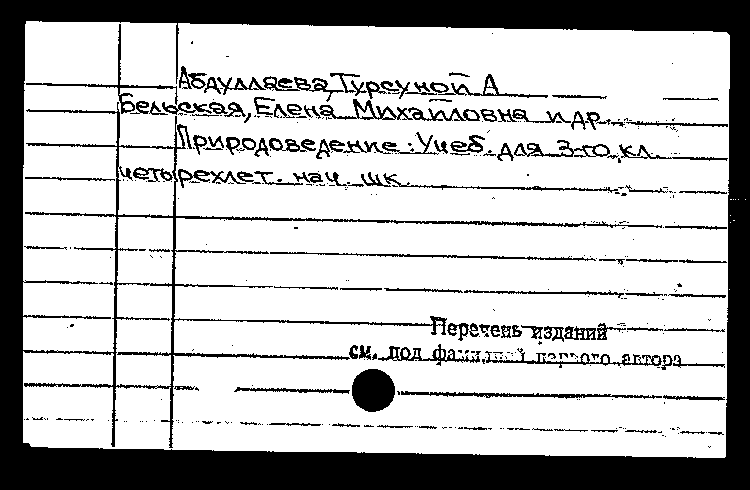 Абдуллаева, Турсуной А
Бельская, Елена Михайловна и др.
Природоведение : Учеб. для 3-го кл.
четырехлет. нач. шк.
Перечень изданий
см. под фамилией первого автора